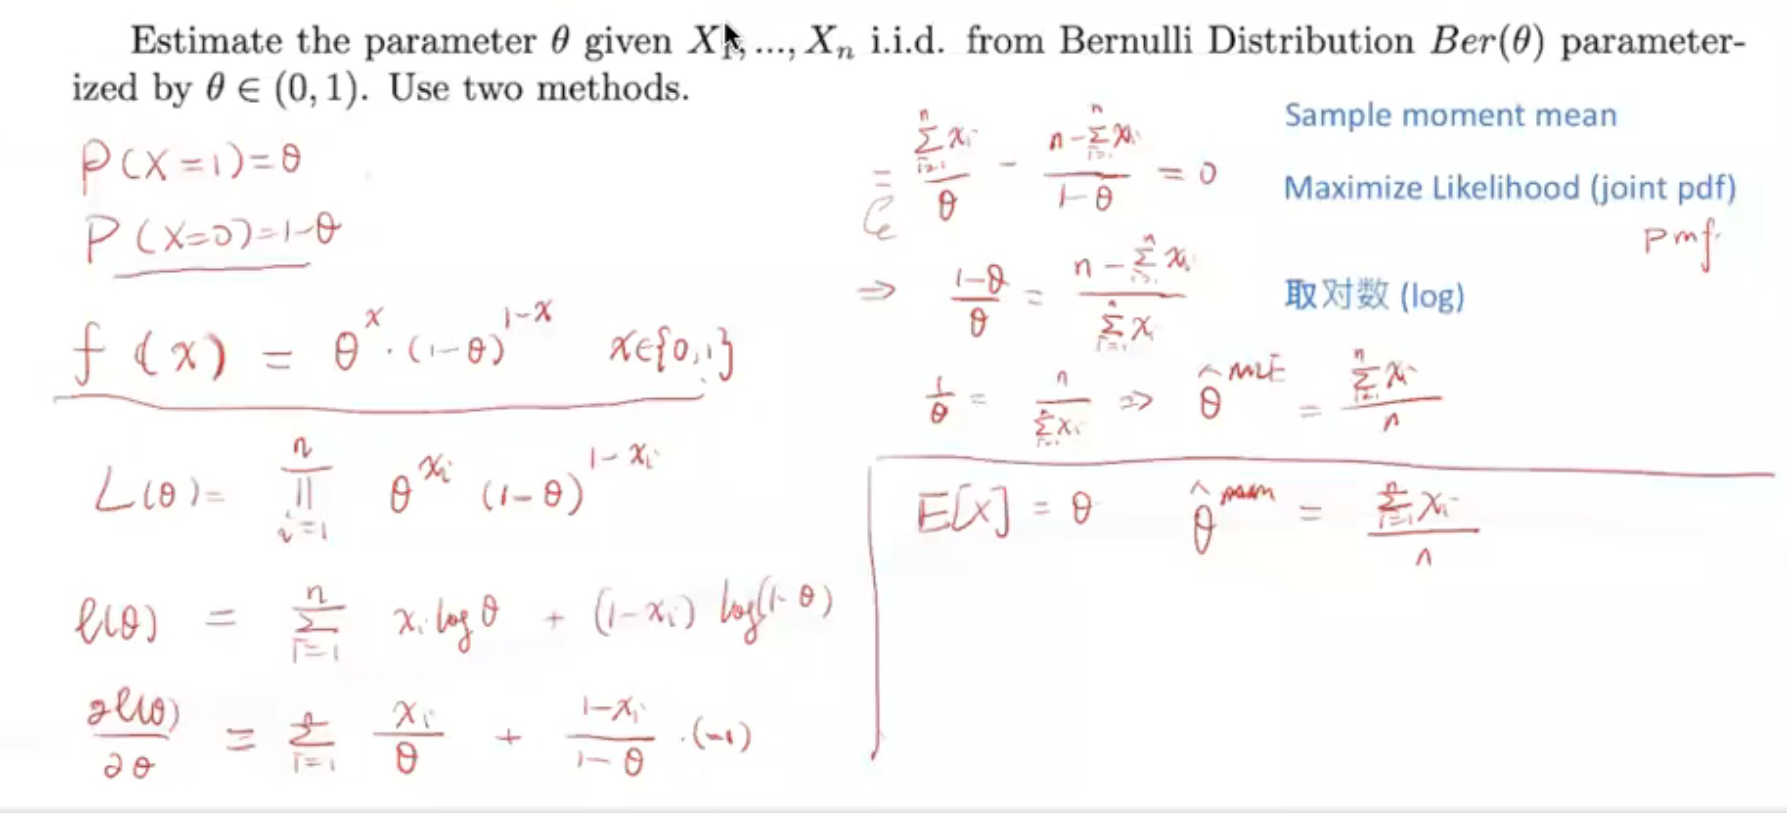 Estimate the parameter θ given X1, ..., Xn i.i.d. from Bernulli Distribution Ber(θ) parameter-
ized by θ ∈ (0, 1). Use two methods.
P(X=1)=θ
P(X=0)=1-θ
f(x) = θ^x · (1-θ)^(1-x) x∈{0,1}
L(θ)= ∏_{i=1}^n θ^{xi} (1-θ)^{1-xi}
ℓ(θ) = ∑_{i=1}^n xi log θ + (1-xi) log(1-θ)
∂ℓ(θ)/∂θ = ∑_{i=1}^n xi/θ + (1-xi)/(1-θ) · (-1)
= (∑_{i=1}^n xi)/θ - (n-∑_{i=1}^n xi)/(1-θ) = 0
⇒ (1-θ)/θ = (n-∑_{i=1}^n xi)/(∑_{i=1}^n xi)
1/θ = n/(∑_{i=1}^n xi) ⇒ θ̂^MLE = (∑_{i=1}^n xi)/n
E[X] = θ θ̂^mom = (∑_{i=1}^n Xi)/n
Sample moment mean
Maximize Likelihood (joint pdf)
pmf
取对数 (log)